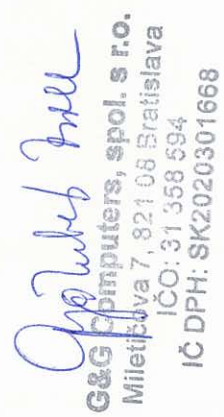 G&G Computers, spol. s r.o.
Miletičova 7, 821 08 Bratislava
IČO: 31 358 594
IČ DPH: SK2020301668